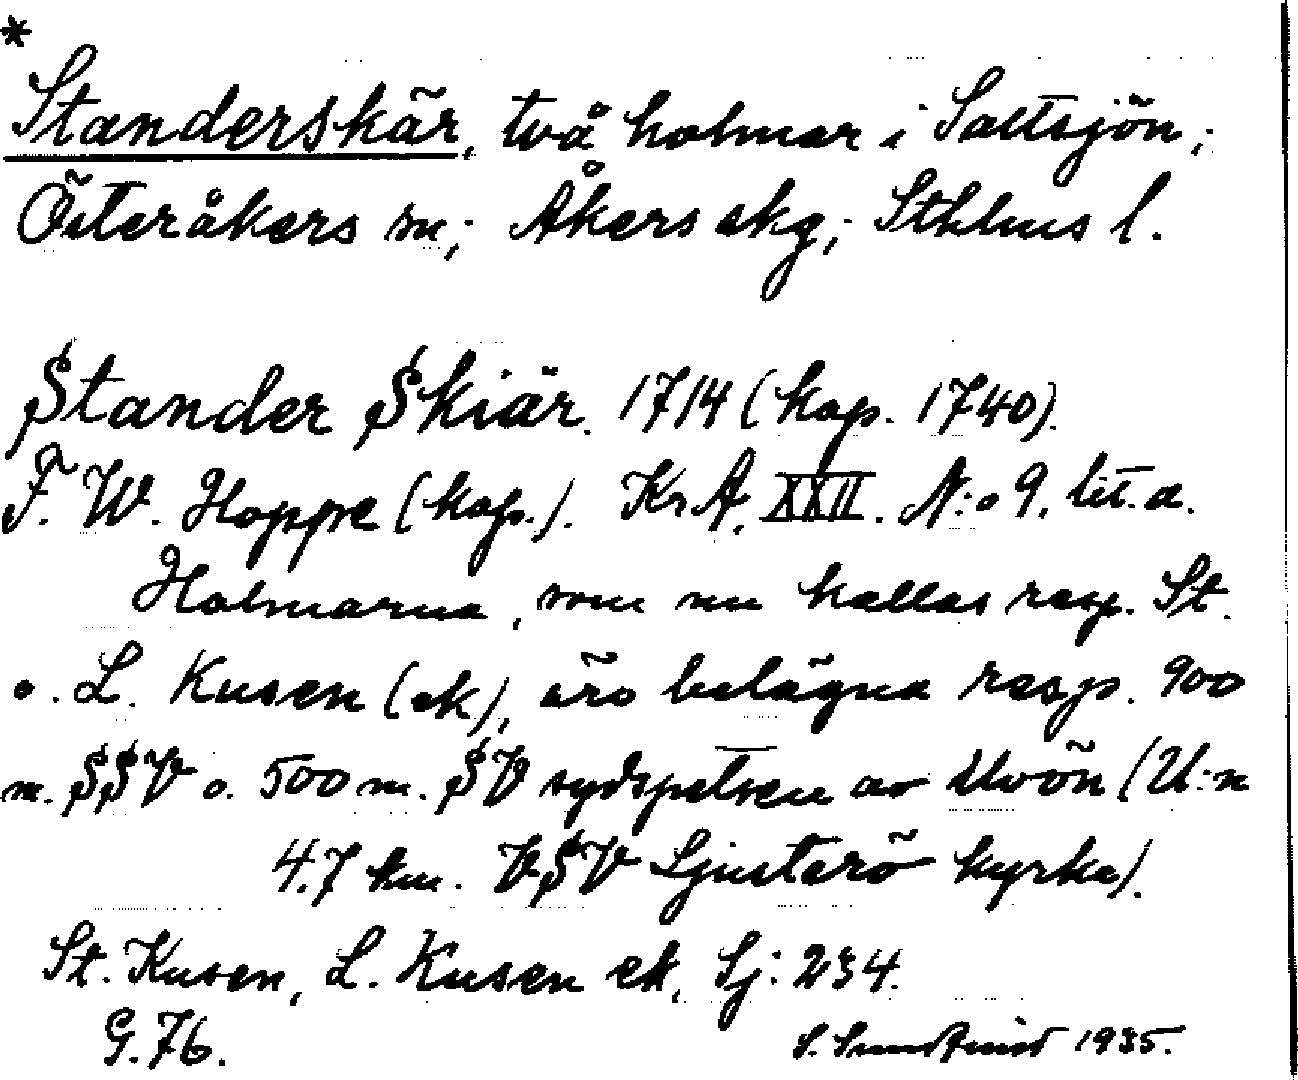 *
Standerskär, två holmar i Saltsjön;
Österåkers sn; Åkers skg; Sthlms l.
Stander Skiär. 1714 (kop. 1740).
F. W. Hoppe (kop.). Kr A. XXII. N:o 9. lit. a.
Holmarna, som nu kallas resp. St.
o. L. Kusen (ek), äro belägna resp. 900
m. SSV o. 500 m. SV sydspetsen av Uvön (U:n
4.7 km. VSV Ljusterö kyrka).
St. Kusen, L. Kusen ek, Sj: 234.
G. 76.
S. 1935.